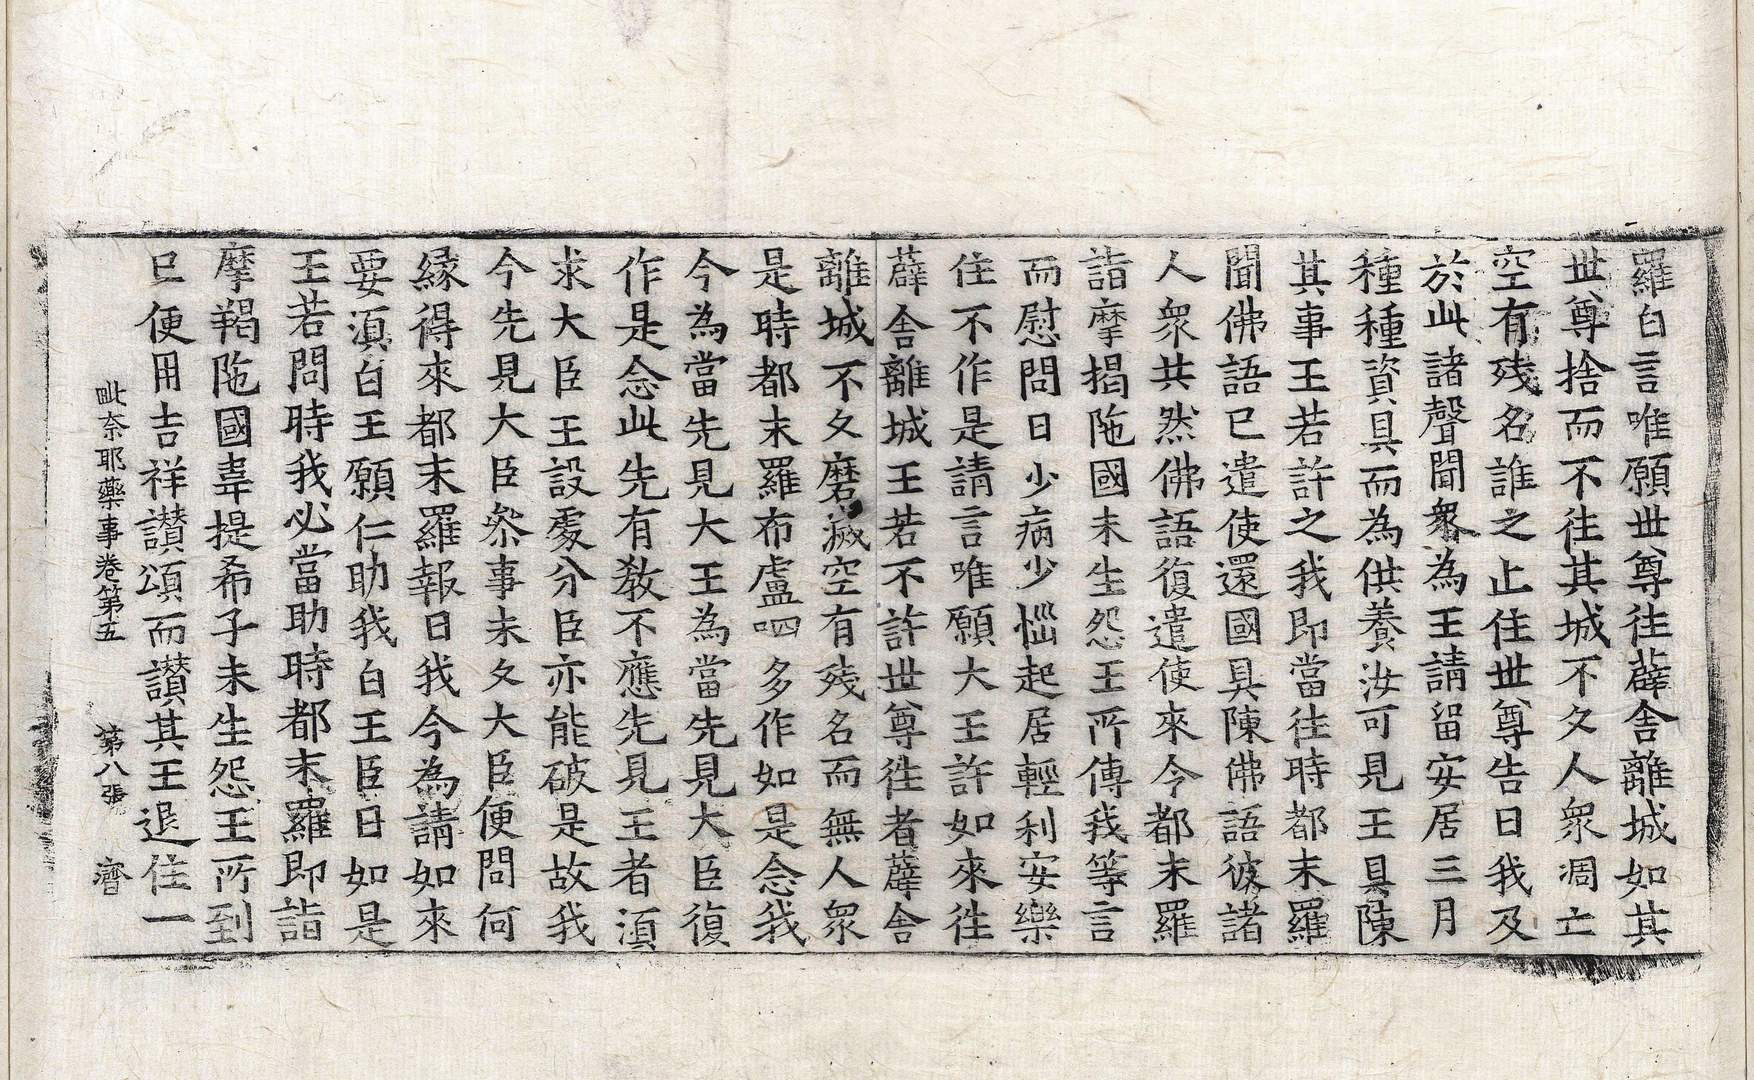 羅白言唯願世尊往薜舍離城如其
世尊捨而不往其城不久人衆凋亡
空有残名誰之止住世尊告曰我及
於此諸聲聞衆為王請留安居三月
種種資具而為供養汝可見王具陳
其事王若許之我即當往時都末羅
聞佛語已遣使還國具陳佛語彼諸
人衆共然佛語復遣使來今都末羅
詣摩揭陁國未生怨王所傳我等言
而慰問曰少病少惱起居輕利安樂
住不作是請言唯願大王許如來往
薜舍離城王若不許世尊往者薜舍
離城不久磨滅空有残名而無人衆
是時都末羅布盧呬多作如是念我
今為當先見大王為當先見大臣復
作是念此先有教不應先見王者湏
求大臣王設處分臣亦能破是故我
今先見大臣叅事未久大臣便問何
緣得來都末羅報曰我今為請如來
要湏白王願仁助我白王臣曰如是
王若問時我必當助時都末羅即詣
摩羯陁國韋提希子未生怨王所到
已便用吉祥讚頌而讚其王退住一
毗奈耶藥事卷第五　第八張　濟